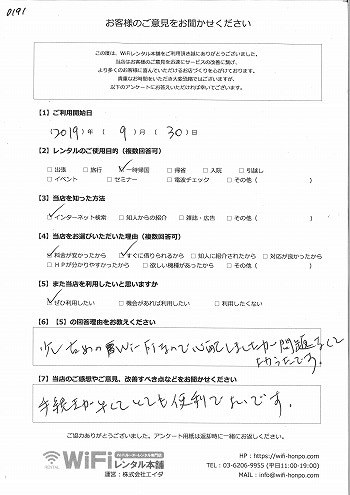 0191
お客様のご意見をお聞かせください
この度は、WiFiレンタル本舗をご利用頂き誠にありがとうございました。
当店はお客様のご意見を迅速にサービスの改善に繋げ、
より多くのお客様に喜んでいただけるお店づくりを心がけております。
貴重なお時間をいただき大変恐縮ではございますが、
以下のアンケートにお答えいただければ幸いでございます。
【1】ご利用開始日
(2019) 年 ( 9 ) 月 ( 30 ) 日
【2】レンタルのご使用目的（複数回答可）
□ 出張 □ 旅行 ☑ 一時帰国 □ 帰省 □ 入院 □ 引越し
□ イベント □ セミナー □ 電波チェック □ その他（ ）
【3】当店を知った方法
☑ インターネット検索 □ 知人からの紹介 □ 雑誌・広告 □ その他（ ）
【4】当店をお選びいただいた理由（複数回答可）
☑ 料金が安かったから ☑ すぐに借りられるから □ 知人に紹介されたから □ 対応が良かったから
□ ＨＰが分かりやすかったから □ 欲しい機種があったから □ その他（ ）
【5】また当店を利用したいと思いますか
☑ ぜひ利用したい □ 機会があれば利用したい □ 利用したくない
【6】【5】の回答理由をお教えください
少し古めのWi-Fiなので心配しましたが問題なくて
よかったです。
【7】当店のご感想やご意見、改善すべき点などをお聞かせください
手続きが早くてとても便利でよいです。
ご協力ありがとうございました。アンケート用紙は返却時に一緒にお送りください。
WiFiルーターレンタル専門店
RENTAL WiFi レンタル本舗
運営：株式会社エイダ
HP : https://wifi-honpo.com
TEL : 03-6206-9955 (平日11:00-19:00)
MAIL : info@wifi-honpo.com